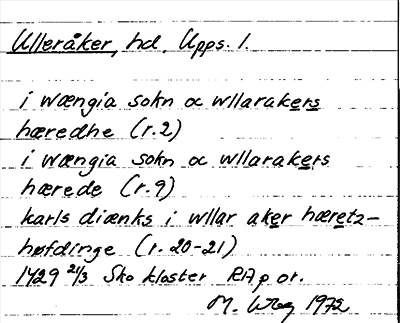 Ulleråker, hd, Upps. l.
i wængia sokn oc wllarakers
hæredhe (r.2)
i wængia sokn oc wllarakers
hærede (r.9)
karls diænks i wllar aker hæretz-
høfdinge (r. 20-21)
1429 21/3 Sko kloster RA p or.
M. 1972